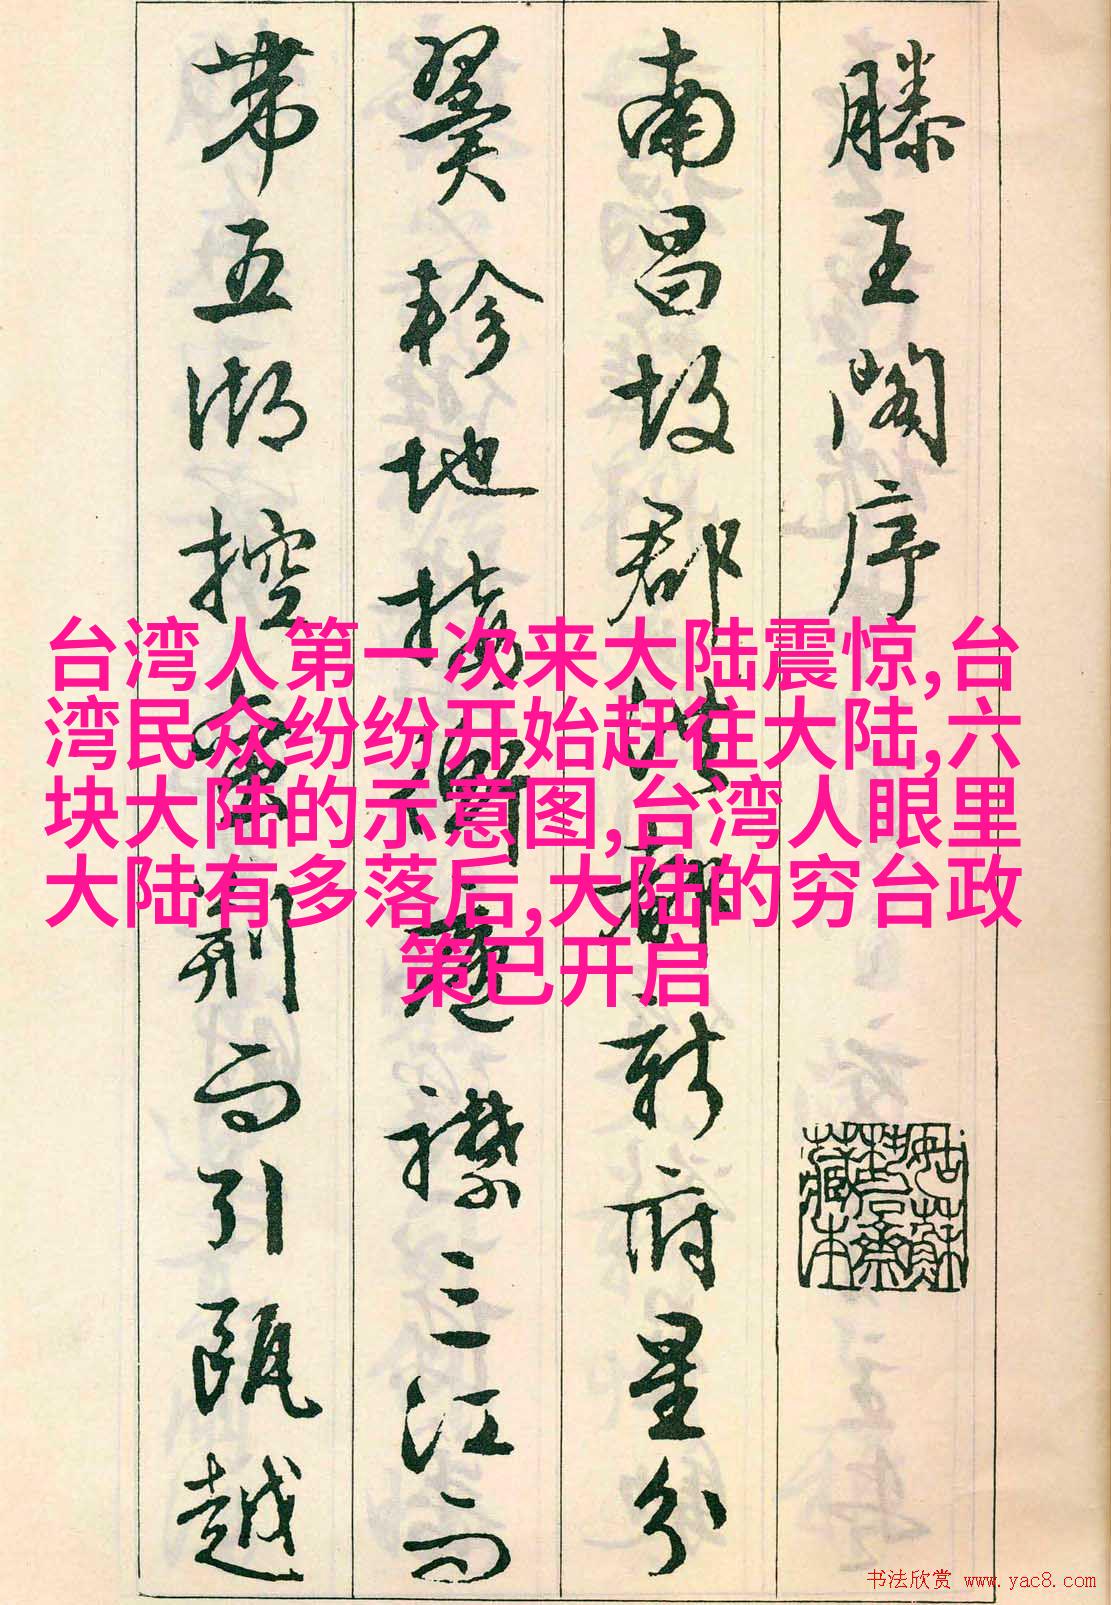 滕王閣序
南昌故郡洪都新府星分
翼軫地接衡廬襟三江而
帶五湖控蠻荊而引甌越
台湾人第一次来大陆震惊,台
湾民众纷纷开始赶往大陆,六
块大陆的示意图,台湾人眼里
大陆有多落后,大陆的穷台政
策已开启
书法欣赏 www.yac8.com